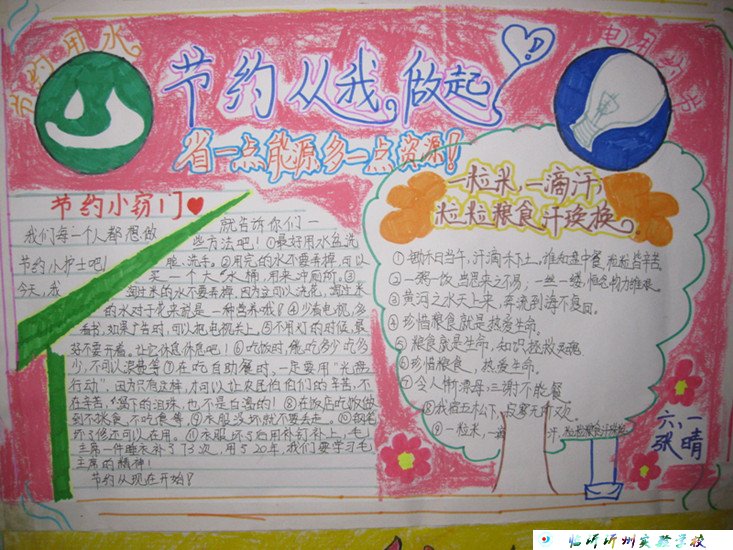 节约用水
节约从我做起
省一点能源多一点资源!
节约小窍门
我们每一个人都想做
节约小护士吧!
今天,我
就告诉你们一
些方法吧!①最好用水盆洗
脸、洗手。②用完的水不要丢掉,可以
买一个大“水桶”用来冲厕所。③
淘过米的水不要丢掉,因为它可以浇花,淘过米
的水对于花来说是一种营养哦?④少看电视,多
看书,如果广告时,可以把电视关上,⑤不用灯的时候,最
好不要开着。让它休息休息吧!⑥吃饭时,能吃多少吃多
少,不可以浪费等⑦在吃自助餐时,一定要用“光盘
行动”,因为只有这样,才可以让农民伯伯们的辛苦,不
在辛苦,留下的泪珠,也不是白湿的!⑧在饭店吃饭做
到不挑食,不吃食等⑨衣服当坏就不要丢走。⑩
坏了修还可以在用。⑪衣服坏了后用补钉补上,毛
主席一件睡衣补了73次,用了20年,我们要学习毛
主席的精神!
节约从现在开始?
一粒米,一滴汗,
粒粒粮食汗珠换。
①锄禾日当午,汗滴禾下土,谁知盘中餐,粒粒皆辛苦。
②一粥一饭,当思来之不易;一丝一缕,恒念物力维艰。
③黄河之水天上来,奔流到海不复回。
④珍惜粮食就是热爱生命。
⑤粮食就是生命,知识拯救灵魂
⑥珍惜粮食,热爱生命。
⑦令人惭漂母,三谢不能餐
⑧我宿五松下,寂寥无所欢。
⑨一粒米,一滴汗,粒粒粮食汗珠换
六、一
张晴
临沂沂州实验学校